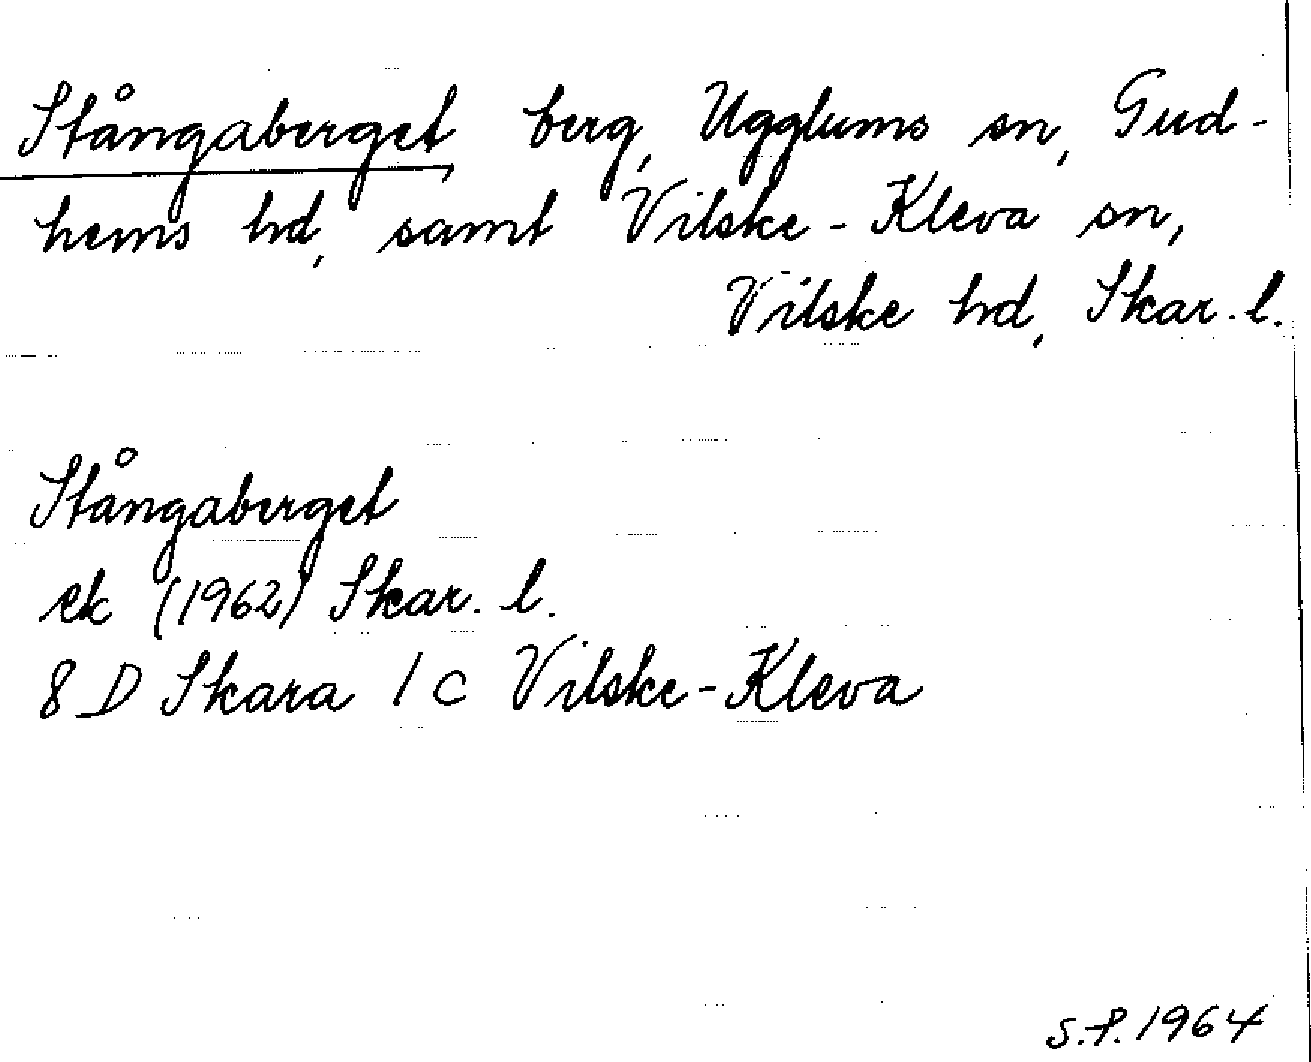 Stångaberget, berg, Ugglums sn, Gud-
hems hd, samt Vilske-Kleva sn,
Vilske hd, Skar. l.
Stångaberget
ek (1962) Skar. l.
8 D Skara 1 c Vilske-Kleva
S.F. 1964